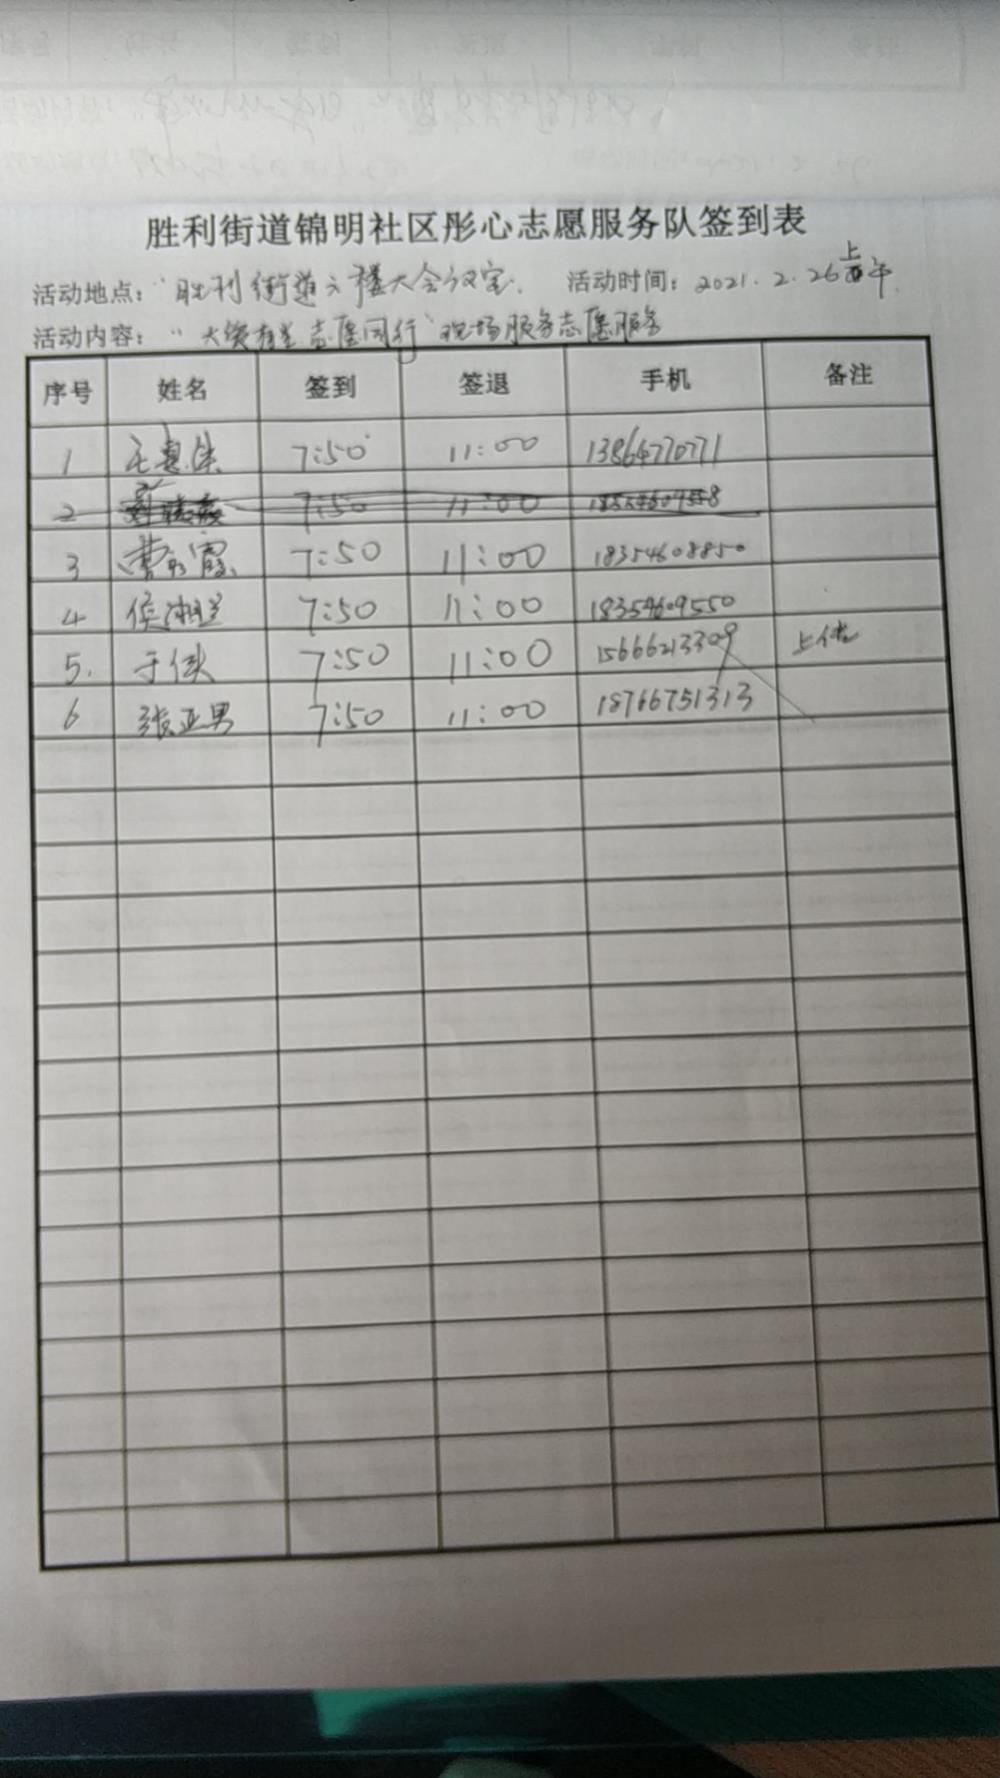 胜利街道锦明社区彤心志愿服务队签到表
活动地点： 胜利街道六楼大会议室. 活动时间：2021.2.26上午
活动内容： 志愿同行"现场服务志愿服务
序号 姓名 签到 签退 手机 备注
1 7:50 11:00 13864770771
2 7:50 11:00
3 曹 霞 7:50 11:00 18354608850
4 侯湘兰 7:50 11:00 18354609550
5. 于佳 7:50 11:00 15666213309 上传
6 张亚男 7:50 11:00 18766751313